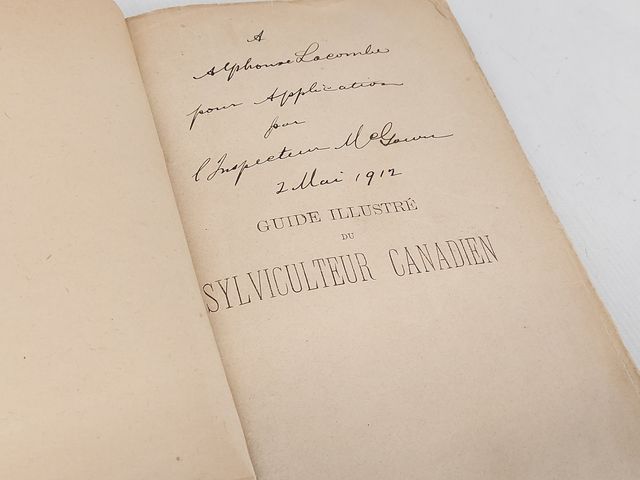 A
Alphonse Lacombe
pour Application
par
l'Inspecteur McGown
2 Mai 1912
GUIDE ILLUSTRÉ
DU
SYLVICULTEUR CANADIEN